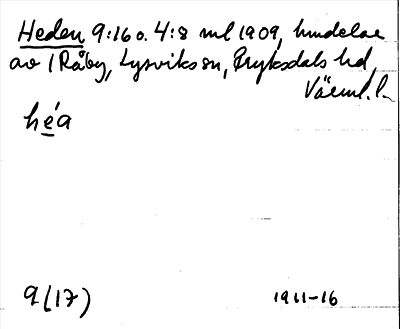 Heden 9:16 o. 4:8 ml 1909, hmdelar
av 1 Råby, Lysviks sn, Fryksdals hd,
Värml. l.
héa
9(17) 1911-16